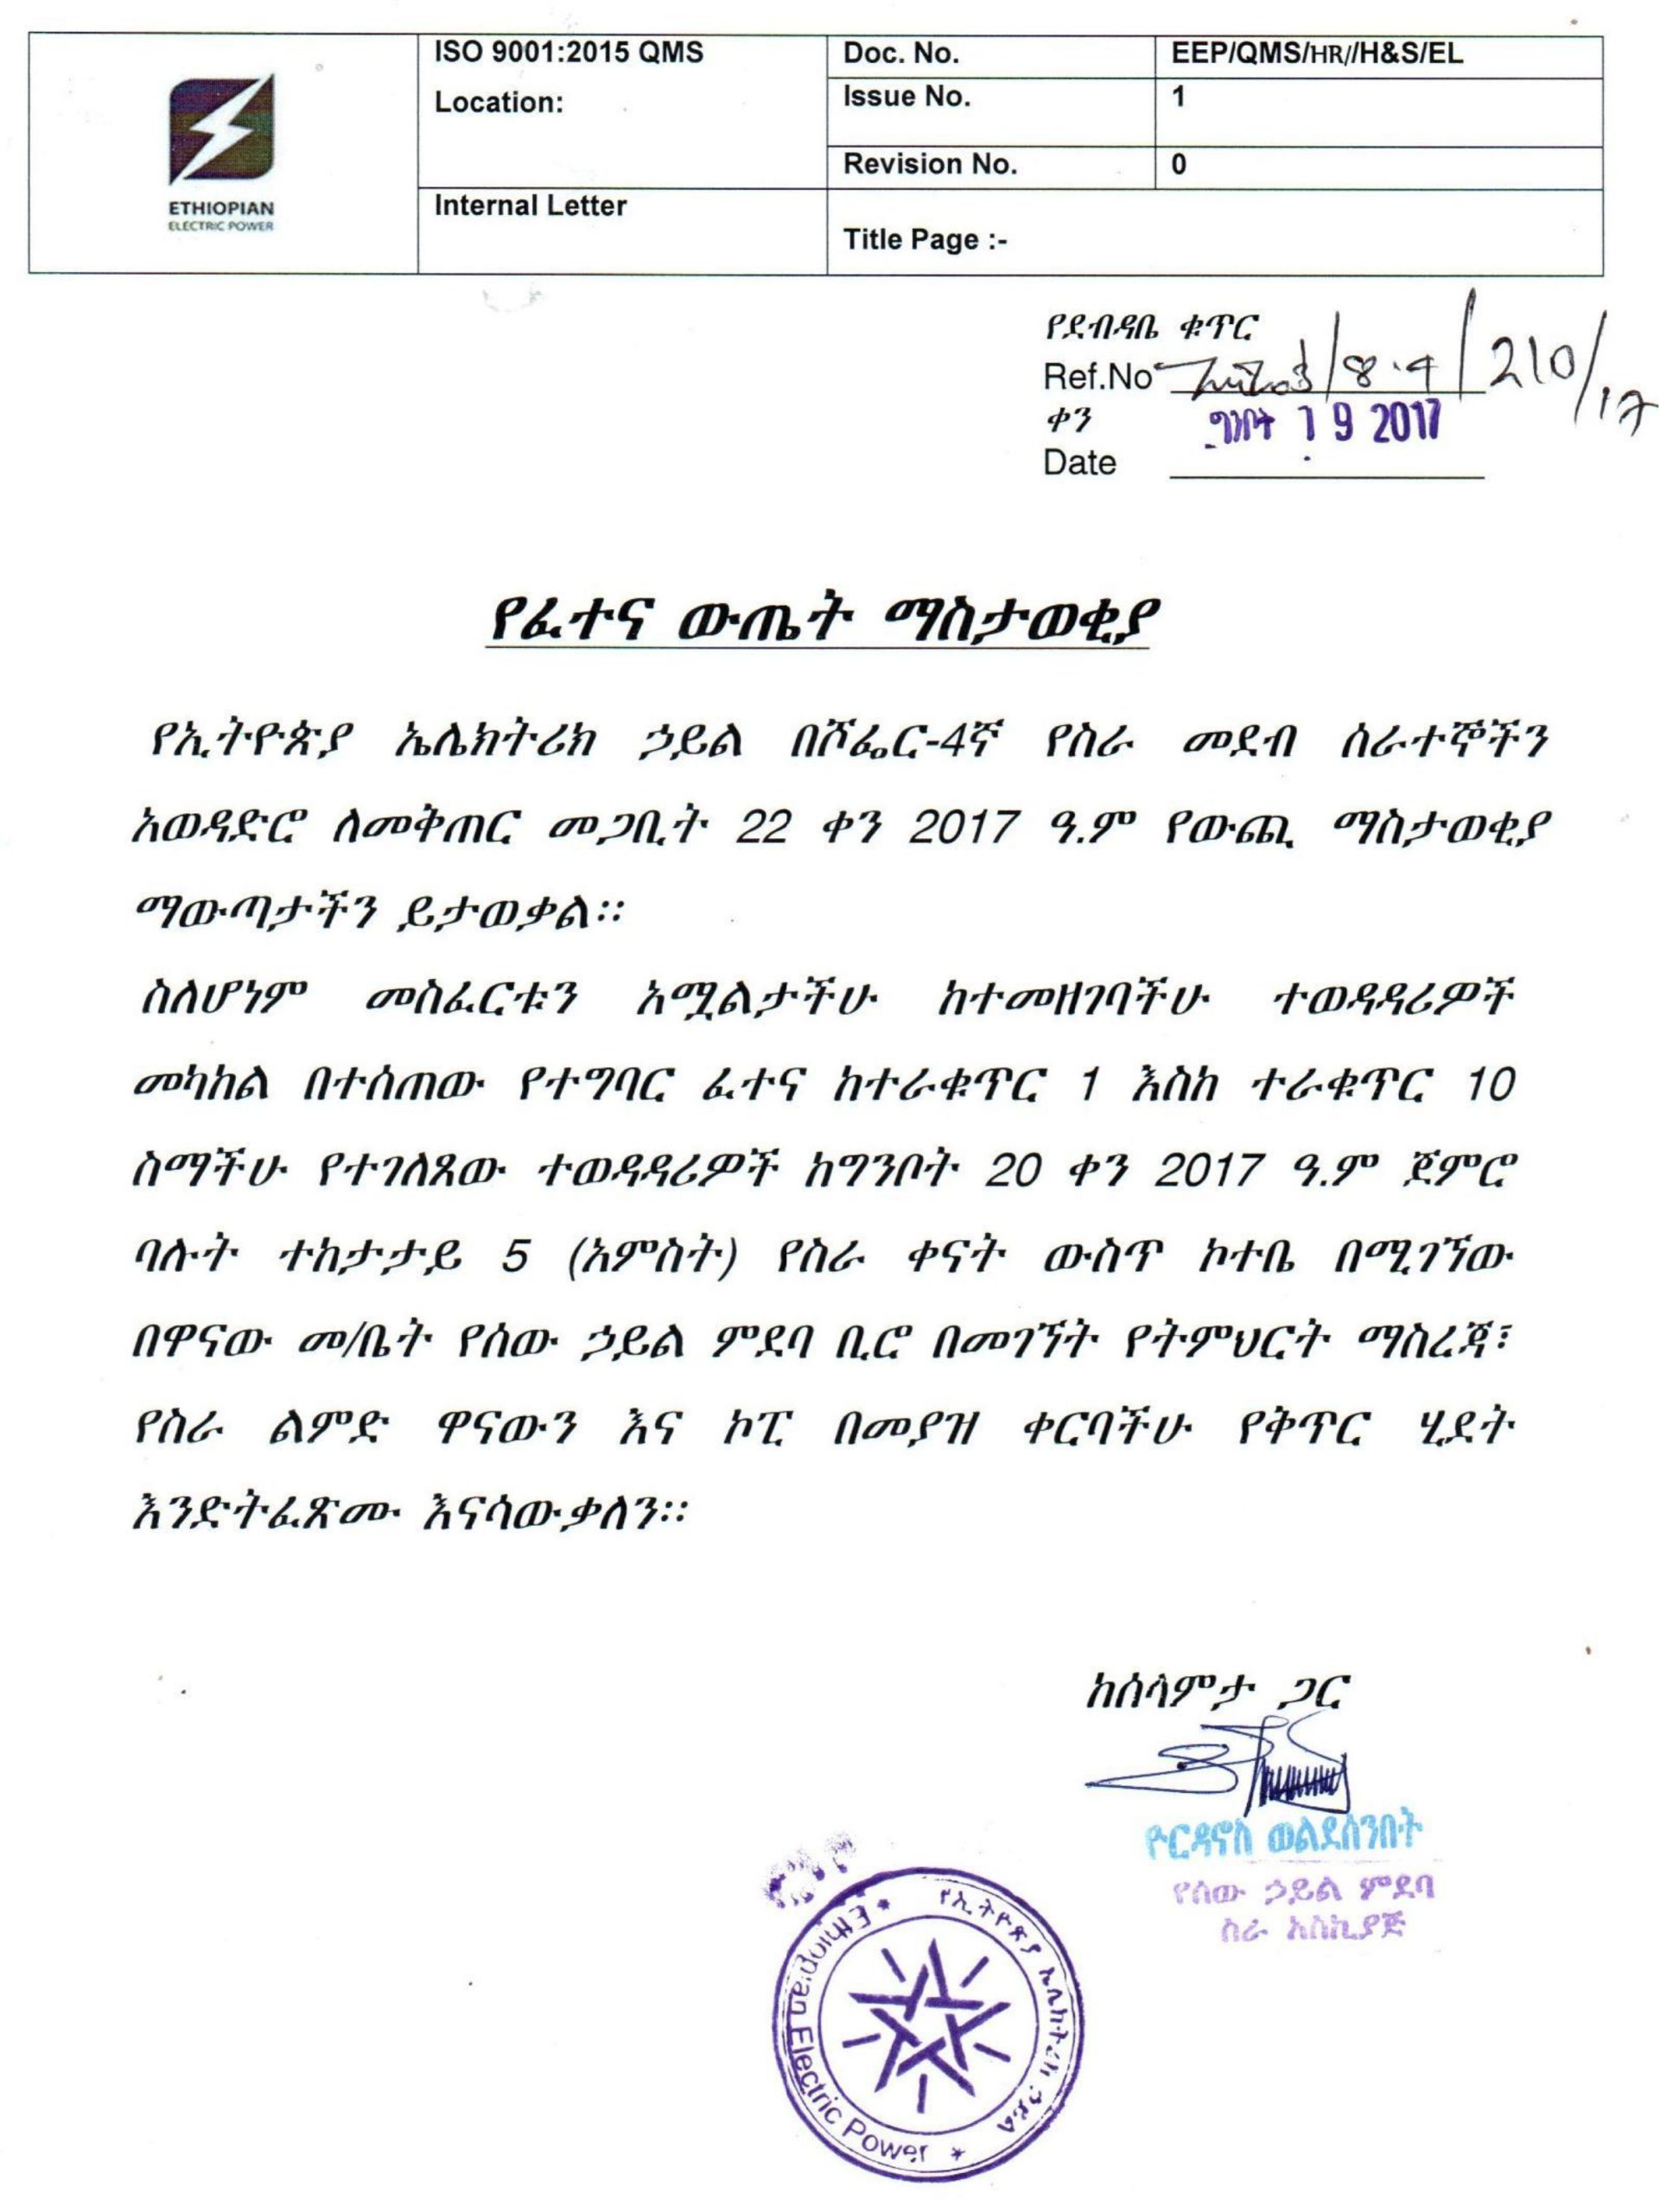 ETHIOPIAN
ELECTRIC POWER
ISO 9001:2015 QMS
Location:
Internal Letter
Doc. No. EEP/QMS/HR//H&S/EL
Issue No. 1
Revision No. 0
Title Page :-
የደብዳቤ ቁጥር
Ref.No /8.4/210/17
ቀን ግንቦት 19 2017
Date
የፈተና ውጤት ማስታወቂያ
የኢትዮጵያ ኤሌክትሪክ ኃይል በሾፌር-4ኛ የስራ መደብ ሰራተኞችን
አወዳድሮ ለመቅጠር መጋቢት 22 ቀን 2017 ዓ.ም የውጪ ማስታወቂያ
ማውጣታችን ይታወቃል፡፡
ስለሆነም መስፈርቱን አሟልታችሁ ከተመዘገባችሁ ተወዳዳሪዎች
መካከል በተሰጠው የተግባር ፈተና ከተራቁጥር 1 እስከ ተራቁጥር 10
ስማችሁ የተገለጸው ተወዳዳሪዎች ከግንቦት 20 ቀን 2017 ዓ.ም ጀምሮ
ባሉት ተከታታይ 5 (አምስት) የስራ ቀናት ውስጥ ኮተቤ በሚገኘው
በዋናው መ/ቤት የሰው ኃይል ምደባ ቢሮ በመገኘት የትምህርት ማስረጃ፣
የስራ ልምድ ዋናውን እና ኮፒ በመያዝ ቀርባችሁ የቅጥር ሂደት
እንድትፈጽሙ እናሳውቃለን፡፡
ከሰላምታ ጋር
ዮርዳኖስ ወልደሰንበት
የሰው ኃይል ምደባ
ስራ አስኪያጅ
የኢትዮጵያ ኤሌክትሪክ ኃይል
Ethiopian Electric Power